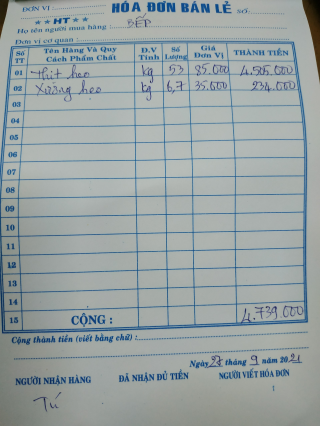 ĐƠN VỊ HÓA ĐƠN BÁN LẺ SỐ:
★★HT★★
Họ tên người mua hàng: BẾP
Đơn vị cơ quan:
Số TT Tên Hàng Và Quy Cách Phẩm Chất Đ.V Tính Số Lượng Giá Đơn Vị THÀNH TIỀN
01 Thịt heo kg 53 85.000 4.505.000
02 Xương heo kg 6,7 35.000 234.000
03
04
05
06
07
08
09
10
11
12
13
14
15 CỘNG: 4.739.000
Cộng thành tiền (viết bằng chữ):
Ngày 27 tháng 9 năm 2021
NGƯỜI NHẬN HÀNG ĐÃ NHẬN ĐỦ TIỀN NGƯỜI VIẾT HÓA ĐƠN
Tú